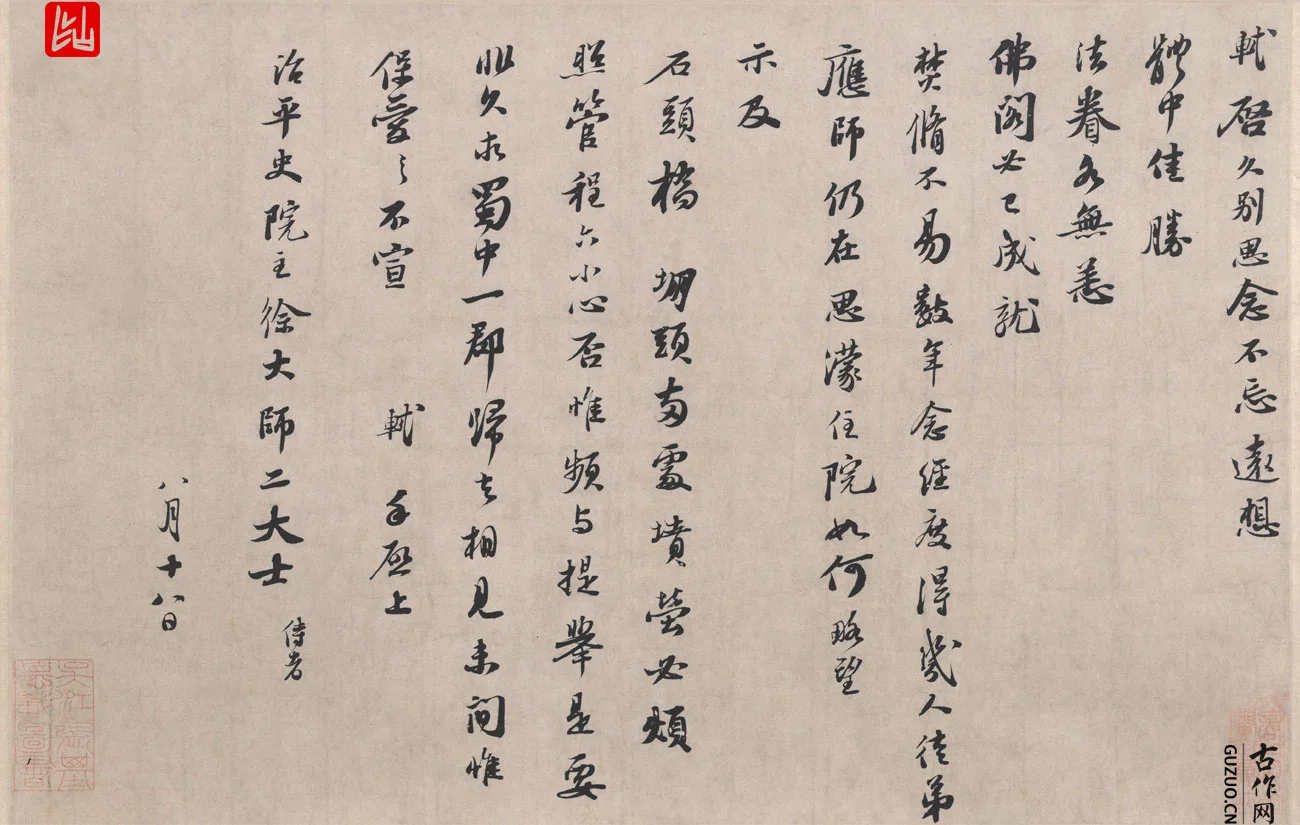 軾啓久別思念不忘遠想
體中佳勝
法眷各無恙
佛閣必已成就
焚脩不易數年念經度得幾人徒弟
應師仍在思濛住院如何略望
示及
石頭橋堋頭兩處墳塋必煩
照管程六小心否惟頻与提舉是要
非久求蜀中一郡歸去相見未間惟
保愛之不宣 軾手啓上
治平史院主徐大師二大士侍者
八月十八日
古作网
GUZUO.CN